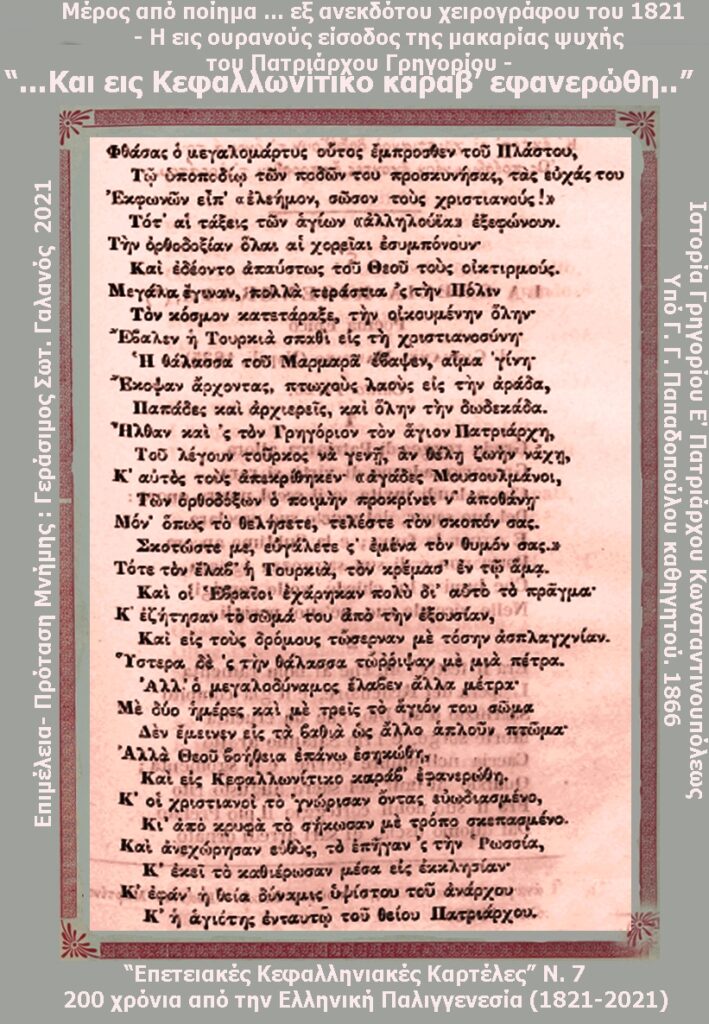 Μέρος από ποίημα ... εξ ανεκδότου χειρογράφου του 1821
- Η εις ουρανούς είσοδος της μακαρίας ψυχής
του Πατριάρχου Γρηγορίου -
“...Και εις Κεφαλλωνίτικο καραβ’ εφανερώθη..”
Φθάσας ὁ μεγαλομάρτυς οὗτος ἔμπροσθεν τοῦ Πλάστου,
Τῷ ὑποποδίῳ τῶν ποδῶν του προσκυνήσας, τὰς εὐχάς του
Ἐκφωνῶν εἶπ’ «ἐλεῆμον, σῶσον τοὺς χριστιανούς!»
Τότ’ αἱ τάξεις τῶν ἁγίων «ἀλληλούϊα» ἐξεφώνουν.
Τὴν ὀρθοδοξίαν ὅλαι αἱ χορεῖαι ἐσυμπόνουν·
Καὶ ἐδέοντο ἀπαύστως τοῦ Θεοῦ τοὺς οἰκτιρμούς.
Μεγάλα ἔγιναν, πολλὰ τεράστια ’ς τὴν Πόλιν
Τὸν κόσμον κατετάραξε, τὴν οἰκουμένην ὅλην·
Ἔβαλεν ἡ Τουρκιὰ σπαθὶ εἰς τὴ χριστιανοσύνη·
Ἡ θάλασσα τοῦ Μαρμαρᾶ ἔβαψεν, αἷμα ’γίνη·
Ἔκοψαν ἄρχοντας, πτωχοὺς λαοὺς εἰς τὴν ἀράδα,
Παπάδες καὶ ἀρχιερεῖς, καὶ ὅλην τὴν δωδεκάδα.
Ἦλθαν καὶ ’ς τὸν Γρηγόριον τὸν ἅγιον Πατριάρχη,
Τοῦ λέγουν τοῦρκος νὰ γενῇ, ἂν θέλῃ ζωὴν νἄχῃ,
Κ’ αὐτὸς τοὺς ἀπεκρίθηκεν· «ἀγάδες Μουσουλμάνοι,
Τῶν ὀρθοδόξων ὁ ποιμὴν προκρίνει ν’ ἀποθάνῃ·
Μόν’ ὅπως τὸ θελήσετε, τελέστε τὸν σκοπόν σας.
Σκοτῶστε με, εὐγάλετε ς’ ἐμένα τὸν θυμόν σας.»
Τότε τὸν ἔλαβ’ ἡ Τουρκιὰ, τὸν κρέμασ’ ἐν τῷ ἅμα.
Καὶ οἱ Ἑβραῖοι ἐχάρηκαν πολὺ δι’ αὐτὸ τὸ πρᾶγμα·
Κ’ ἐζήτησαν τὸ σῶμά του ἀπὸ τὴν ἐξουσίαν,
Καὶ εἰς τοὺς δρόμους τὤσερναν μὲ τόσην ἀσπλαγχνίαν.
Ὕστερα δὲ ’ς τὴν θάλασσα τὤρριψαν μὲ μιὰ πέτρα.
Ἀλλ’ ὁ μεγαλοδύναμος ἔλαβεν ἄλλα μέτρα·
Μὲ δύο ἡμέρες καὶ μὲ τρεῖς τὸ ἅγιόν του σῶμα
Δὲν ἔμεινεν εἰς τὰ βαθιὰ ὡς ἄλλο ἁπλοῦν πτῶμα·
Ἀλλὰ Θεοῦ βοήθεια ἐπάνω ἐσηκώθη,
Καὶ εἰς Κεφαλλωνίτικο καράβ’ ἐφανερώθη.
Κ’ οἱ χριστιανοὶ τὸ ’γνώρισαν ὄντας εὐωδιασμένο,
Κι’ ἀπὸ κρυφὰ τὸ σήκωσαν μὲ τρόπο σκεπασμένο.
Καὶ ἀνεχώρησαν εὐθὺς, τὸ ἐπῆγαν ’ς τὴν Ρωσσία,
Κ’ ἐκεῖ τὸ καθιέρωσαν μέσα εἰς ἐκκλησίαν·
Κ’ ἐφάν’ ἡ θεία δύναμις ὑψίστου τοῦ ἀνάρχου
Κ’ ἡ ἁγιότης ἐνταυτῷ τοῦ θείου Πατριάρχου.
Επιμέλεια- Πρόταση Μνήμης : Γεράσιμος Σωτ. Γαλανός 2021
Ιστορία Γρηγορίου Ε' Πατριάρχου Κωνσταντινουπόλεως
Υπό Γ. Γ. Παπαδοπούλου καθηγητού. 1866
“Επετειακές Κεφαλληνιακές Καρτέλες” Ν. 7
200 χρόνια από την Ελληνική Παλιγγενεσία (1821-2021)